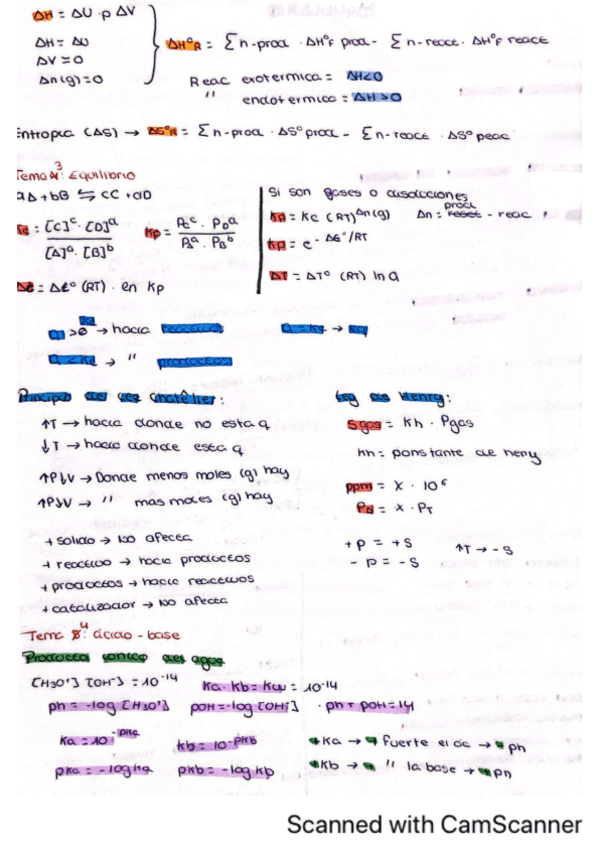 ΔH = ΔU · p ΔV
ΔH = ΔU
ΔV = 0
Δn(g) = 0
ΔH°R = Σ n-prod · ΔH°F prod - Σ n-react · ΔH°F react
Reac exotermica = ΔH<0
" endotermica = ΔH>0
Entropia (ΔS) → ΔS°R = Σ n-prod · ΔS° prod - Σ n-react · ΔS° peac
Tema 3: Equilibrio
aA + bB ⇆ cC + dD
Kc = [C]^c · [D]^d / [A]^a · [B]^b
Kp = Pc^c · PD^d / PA^a · PB^b
= ΔG° (RT) · ln Kp
Si son gases o disoluciones
Kp = Kc (RT)^Δn(g)
Δn = prod - reac
Kp = e^-ΔG°/RT
ΔT = ΔT° (RT) ln Q
Q > Kc → hacia reactivos
Q = Kc → eq
Q < Kc → " productos
Principio de Le Chatêlier:
↑T → hacia donde no esta q
↓T → hacia donde esta q
↑P↓V → Donde menos moles (g) hay
" mas moles (g) hay
+ solido → No afecta
+ reactivo → hacia productos
+ productos → hacia reactivos
+ catalizador → No afecta
Ley de Henry:
S gas = Kh · Pgas
Kh = ponstante de heny
ppm = X · 10^6
= X · PT
+ P = + S
- P = - S
↑T → - S
Tema 4: ácido - base
Producto ionico del agua
[H3O+] [OH-] = 10^-14
Ka · Kb = Kw = 10^-14
ph = -log [H3O+]
pOH = -log [OH-]
· ph + pOH = 14
Ka = 10^-pKa
Kb = 10^-pKb
pKa = -log Ka
pKb = -log Kb
Ka → fuerte el ac → ph
Kb → " la base → ph
Scanned with CamScanner